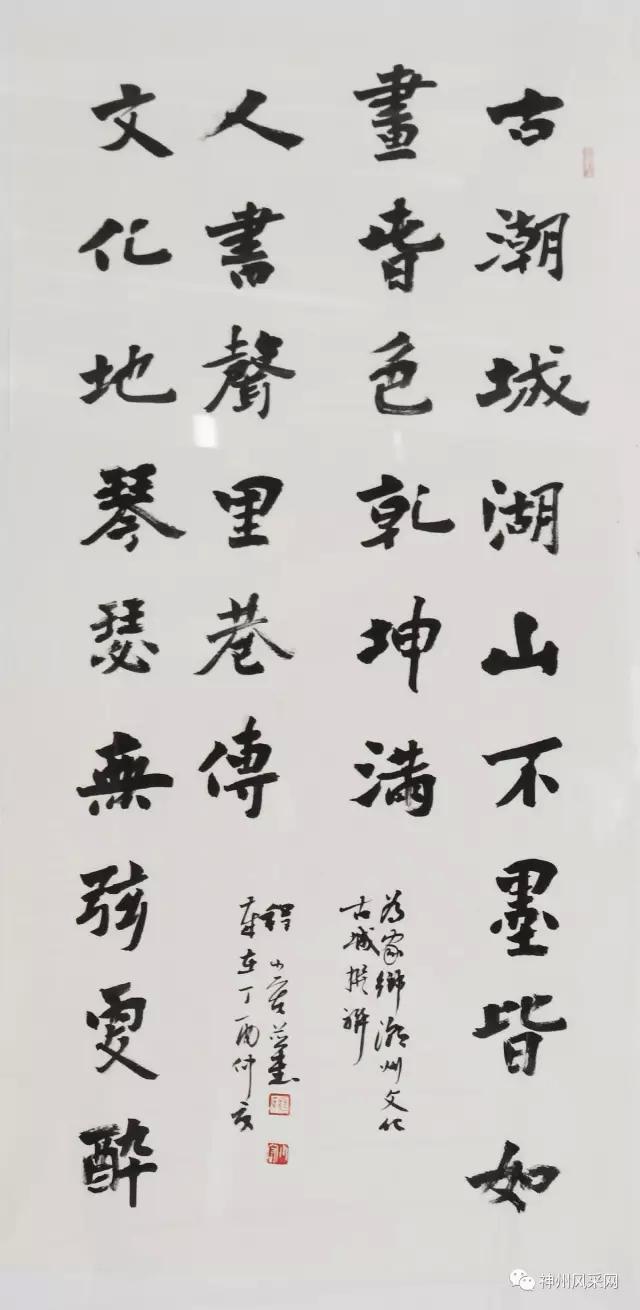 古潮城湖山不墨皆如
畫春色乾坤滿
為家鄉潮州文化
古城撰聯
文化地琴瑟無弦更醉
人書聲里巷傳
歲在丁酉仲夏
神州风采网